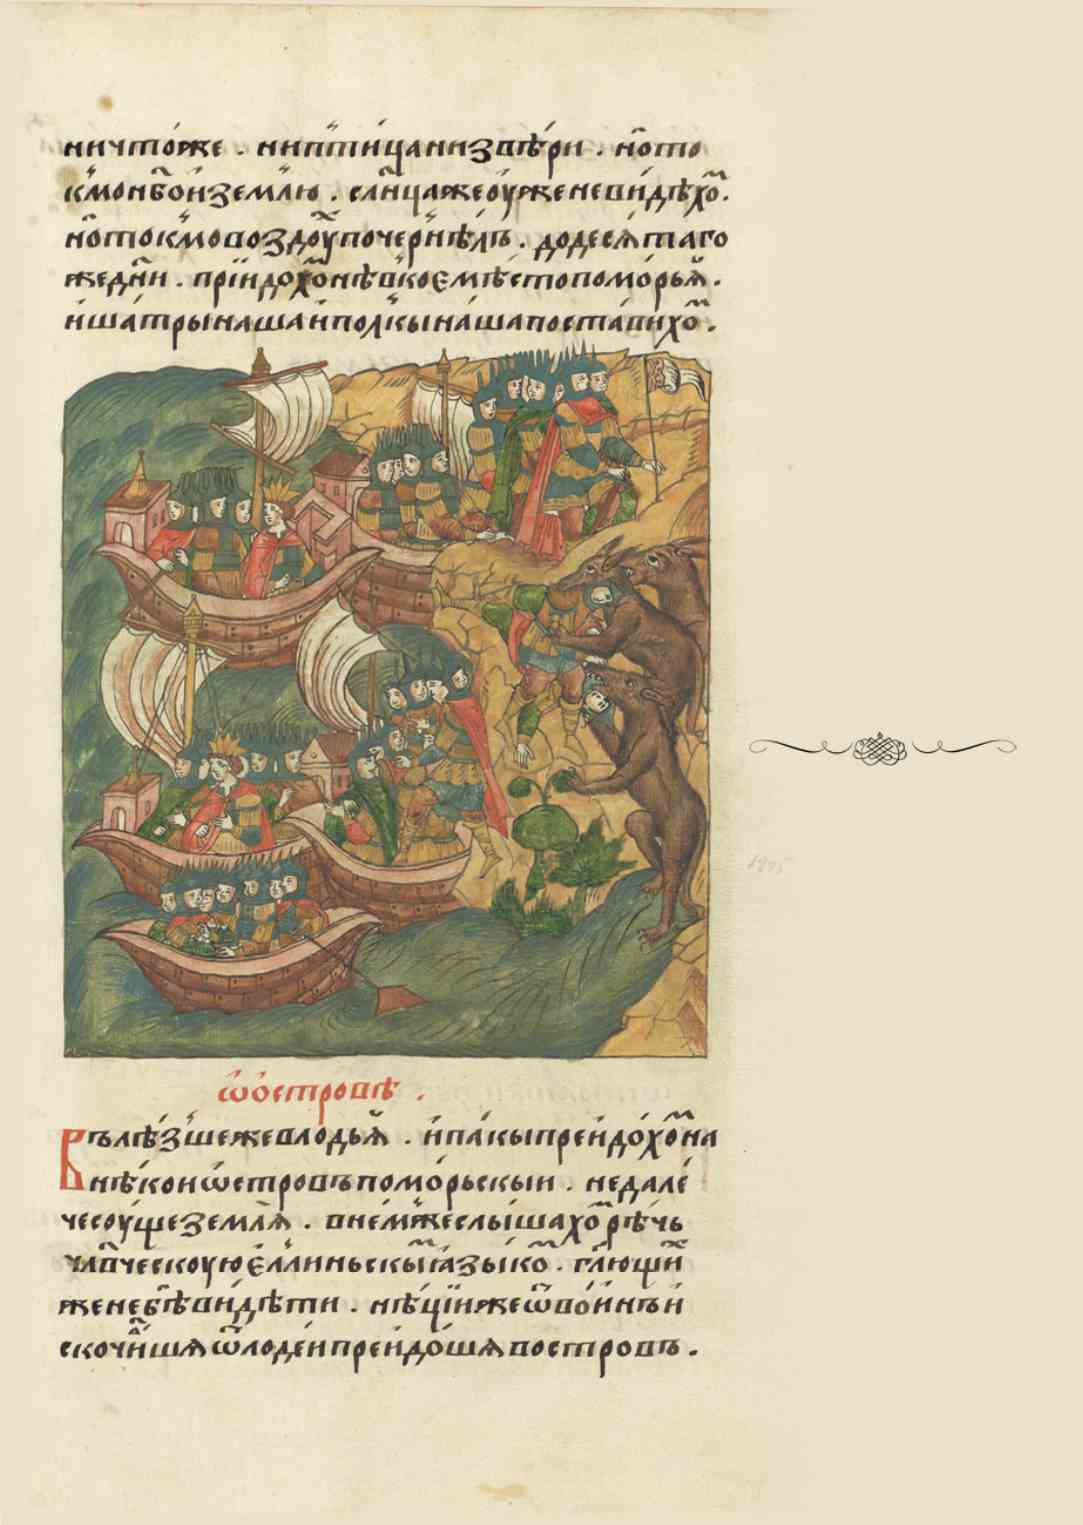 ничто́же . ниптица низвѣ́ри . но́то
кмо нб҃о и́землю . слн҃ца же оу́же не ви́дѣхо̑ .
но́токмо воздоу̑ поче́рнѣлъ . до десѧ́таго
же дн҃и . прїи́дохо̑ нѣ́ в кое мѣ́сто помо́рьѧ .
и́ша́тры на́ша и́полкы на́ша поста́вихо̑ .
ѡ҆ о́стровѣ .
Въ лѣ́зше же в ло́дьѧ . и́па́кы преи́дохо̑ на
нѣ́кои ѡ́стровъ помо́рьскыи . не дале́
че соу́ще землѧ̀ . в не́мже слы́шахо̑ рѣ́чь
чл҃вческоую е́ллиньскы̑ ꙗ҆зы́ко̑ . гл҃ющи̑
же не бѣ̀ ви́дѣти . нѣ́цїи же ѿ во́инъ и
скочи́шѧ ѿ лоде́и преи́до́шѧ в островъ .